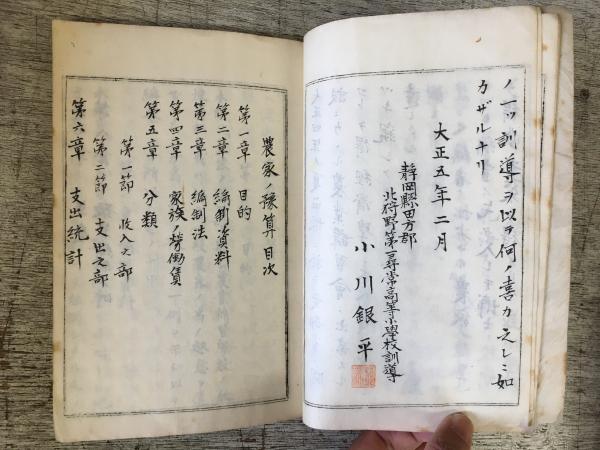 ノ一ツ訓導ヲ以ヲ何ノ喜カ之レニ如
カザルナリ
大正五年二月
靜岡縣田方郡
北狩野第一尋常高等小學校訓導
小川銀平
農家ノ豫算目次
第一章 目的
第二章 編制資料
第三章 編制法
第四章 家族ノ勞働賃
第五章 分類
第一節 收入之部
第二節 支出之部
第六章 支出統計